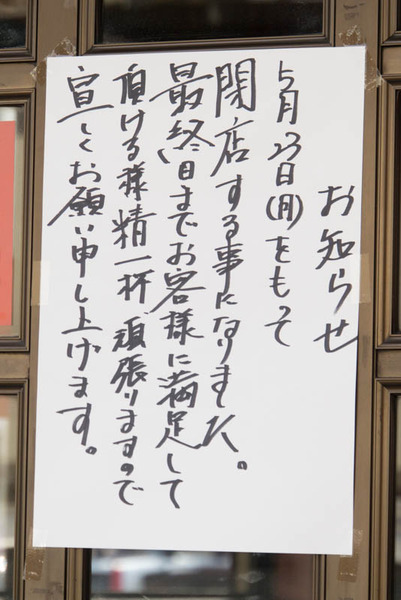 お知らせ
5月23日(月)をもって
閉店する事になりました。
最終日までお客様に満足して
頂ける様精一杯頑張りますので
宜しくお願い申し上げます。